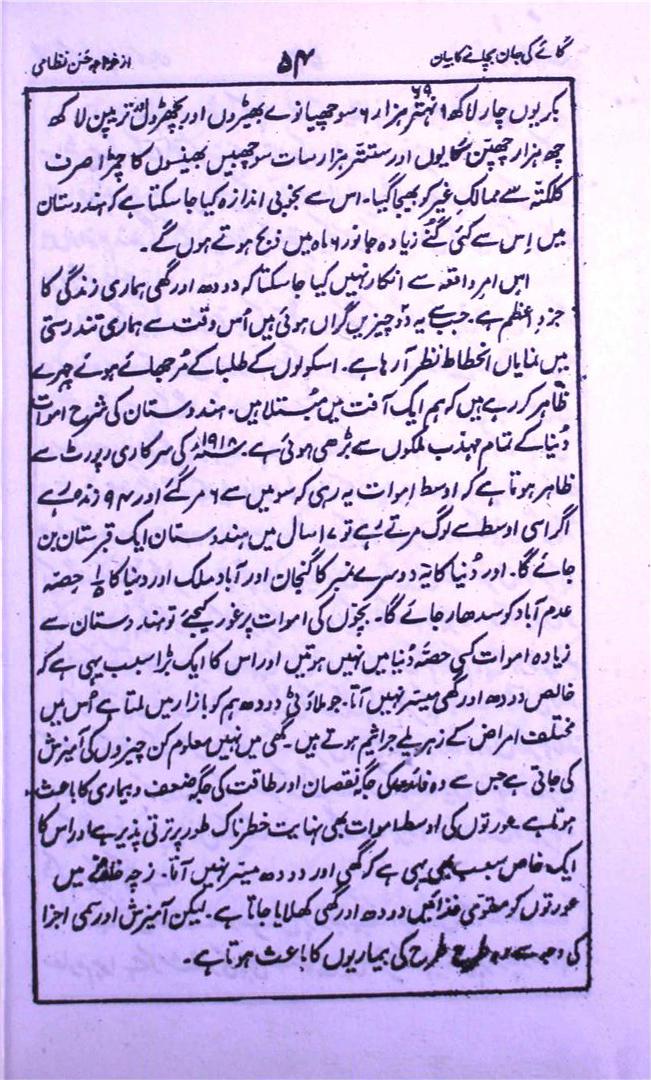 گائے کی جان بچانے کا بیان ۵۴ از خواجہ حسن نظامی
بکریوں چار لاکھ ۶۹ انہتر ہزار ۶ سو چھیانوے بھیڑوں اور بچھڑوں ترپین لاکھ
چھ ہزار چھپن گایوں اور ستتر ہزار سات سو چھبیس بھینسوں کا چمڑا صرف
کلکتہ سے ممالک غیر کو بھیجا گیا۔ اس سے بخوبی اندازہ کیا جا سکتا ہے کہ ہندوستان
میں اِس سے کئی گُنے زیادہ جانور ۶ ماہ میں ذبح ہوتے ہوں گے۔
اِس امرِ واقعہ سے انکار نہیں کیا جا سکتا کہ دودھ اور گھی ہماری زندگی کا
جزوِ اعظم ہے۔ جب سے یہ دو چیزیں گراں ہوئی ہیں اُس وقت سے ہماری تندرستی
میں نمایاں انحطاط نظر آ رہا ہے۔ اسکولوں کے طلبا کے مُرجھائے ہوئے چہرے
ظاہر کر رہے ہیں کہ ہم ایک آفت میں مُبتلا ہیں۔ ہندوستان کی شرح اموات
دُنیا کے تمام مہذب ملکوں سے بڑھی ہوئی ہے۔ ۱۹۱۸ء کی سرکاری رپورٹ سے
ظاہر ہوتا ہے کہ اوسط اموات یہ رہی کہ سو میں سے ۶ مر گئے اور ۹۴ زندہ رہے
اگر اسی اوسط سے لوگ مرتے رہے تو ۱۷ سال میں ہندوستان ایک قبرستان بن
جائے گا۔ اور دُنیا کا یہ دوسرے نمبر کا گنجان اور آباد ملک اور دنیا کا ۱/۵ حصہ
عدم آباد کو سدھار جائے گا۔ بچّوں کی اموات پر غور کیجئے تو ہندوستان سے
زیادہ اموات کسی حصّہ دُنیا میں نہیں ہوتیں اور اس کا ایک بڑا سبب یہی ہے کہ
خالص دودھ اور گھی میسر نہیں آتا۔ جو ملاوٹی دودھ ہم کو بازار میں ملتا ہے اُس میں
مختلف امراض کے زہریلے جراثیم ہوتے ہیں۔ گھی میں نہیں معلوم کن چیزوں کی آمیزش
کی جاتی ہے جس سے وہ فائدہ کی جگہ نقصان اور طاقت کی جگہ ضعف و بیماری کا باعث
ہوتا ہے۔ عورتوں کی اوسط اموات بھی نہایت خطرناک طور پر ترقی پذیر ہے اور اس کا
ایک خاص سبب بھی یہی ہے کہ گھی اور دودھ میسر نہیں آتا۔ زچہ خانے میں
عورتوں کو مقوی غذائیں دودھ اور گھی کھلایا جاتا ہے۔ لیکن آمیزش اور سمی اجزا
کی وجہ سے وہ طرح طرح کی بیماریوں کا باعث ہوتا ہے۔